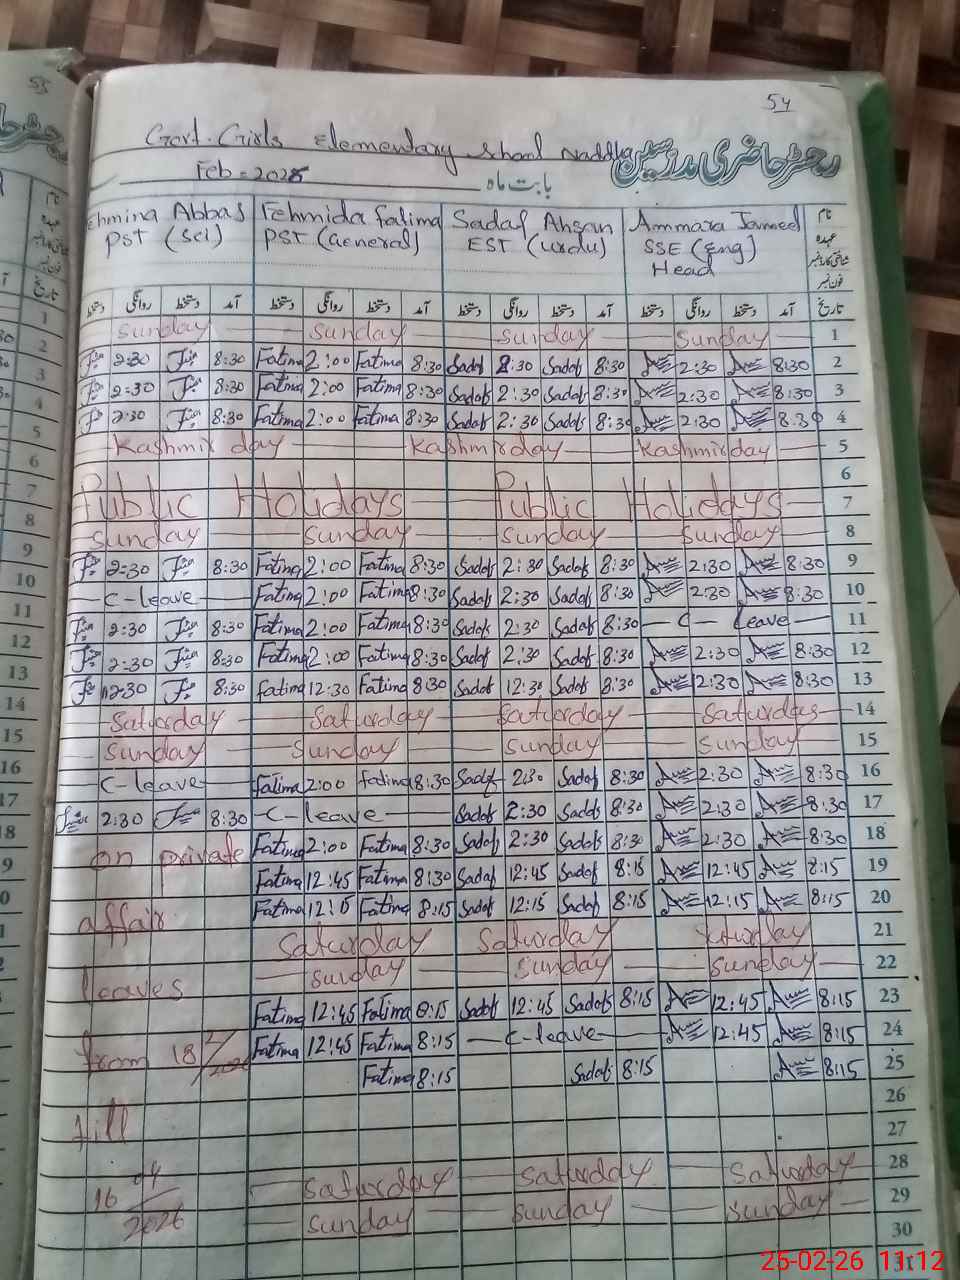 54
Govt. Girls Elementary School Naddha رجسٹر حاضری مدرسین
Feb = 2026 بابت ماہ
Ehmina Abbas Fehmida Fatima Sadaf Ahsan Ammara Jameel نام
PST (Sci) PST (General) EST (Urdu) SSE (Eng) عہدہ
Head شناختی کارڈ نمبر
فون نمبر
دستخط روانگی دستخط آمد دستخط روانگی دستخط آمد دستخط روانگی دستخط آمد دستخط روانگی دستخط آمد تاریخ
Sunday Sunday Sunday Sunday 1
2:30 8:30 Fatima 2:00 Fatima 8:30 Sadaf 2:30 Sadaf 8:30 2:30 8:30 2
2:30 8:30 Fatima 2:00 Fatima 8:30 Sadaf 2:30 Sadaf 8:30 2:30 8:30 3
2:30 8:30 Fatima 2:00 Fatima 8:30 Sadaf 2:30 Sadaf 8:30 2:30 8:30 4
Kashmir day Kashmir day Kashmir day 5
6
Public Holidays Public Holidays 7
Sunday Sunday Sunday Sunday 8
2:30 8:30 Fatima 2:00 Fatima 8:30 Sadaf 2:30 Sadaf 8:30 2:30 8:30 9
C-leave Fatima 2:00 Fatima 8:30 Sadaf 2:30 Sadaf 8:30 2:30 8:30 10
2:30 8:30 Fatima 2:00 Fatima 8:30 Sadaf 2:30 Sadaf 8:30 C- leave 11
2:30 8:30 Fatima 2:00 Fatima 8:30 Sadaf 2:30 Sadaf 8:30 2:30 8:30 12
12:30 8:30 fatima 12:30 Fatima 8:30 Sadaf 12:30 Sadaf 8:30 12:30 8:30 13
Saturday Saturday Saturday Saturday 14
Sunday Sunday Sunday Sunday 15
C-leave Fatima 2:00 fatima 8:30 Sadaf 2:30 Sadaf 8:30 2:30 8:30 16
2:30 8:30 C-leave Sadaf 2:30 Sadaf 8:30 2:30 8:30 17
on private Fatima 2:00 Fatima 8:30 Sadaf 2:30 Sadaf 8:30 2:30 8:30 18
Fatima 12:45 Fatima 8:30 Sadaf 12:45 Sadaf 8:15 12:45 8:15 19
affair Fatima 12:15 Fatima 8:15 Sadaf 12:15 Sadaf 8:15 12:15 8:15 20
Saturday Saturday Saturday 21
leaves Sunday Sunday Sunday 22
Fatima 12:45 Fatima 8:15 Sadaf 12:45 Sadaf 8:15 12:45 8:15 23
from 18/2/2026 Fatima 12:45 Fatima 8:15 C-leave 12:45 8:15 24
Fatima 8:15 Sadaf 8:15 8:15 25
26
till 27
16/04/2026 Saturday Saturday Saturday 28
Sunday Sunday Sunday 29
30
31
25-02-26 11:12